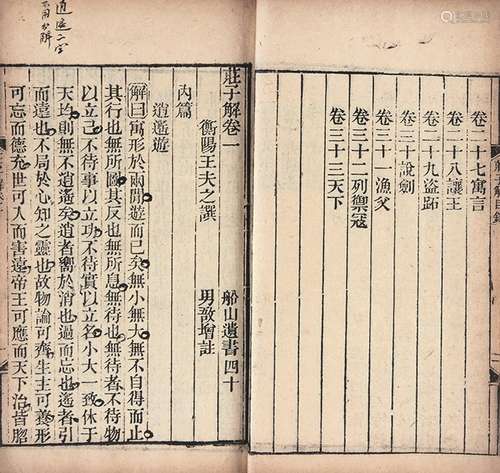 卷二十七寓言
卷二十八讓王
卷二十九盜跖
卷三十說劍
卷三十一漁父
卷三十二列禦寇
卷三十三天下
莊子解卷一
船山遺書四十
衡陽王夫之譔
男敔增註
內篇
逍遙遊
解曰寓形於兩閒遊而已矣無小無大無不自得而止
其行也無所圖其反也無所息無待也無待者不待物
以立己不待事以立功不待實以立名小大一致休于
天均則無不逍遙矣逍者嚮於消也過而忘也遙者引
而遠也不局於心知之靈也故物論可齊生主可養形
可忘而德充世可入而害遠帝王可應而天下治皆脗
逍遙二字
不用分辨